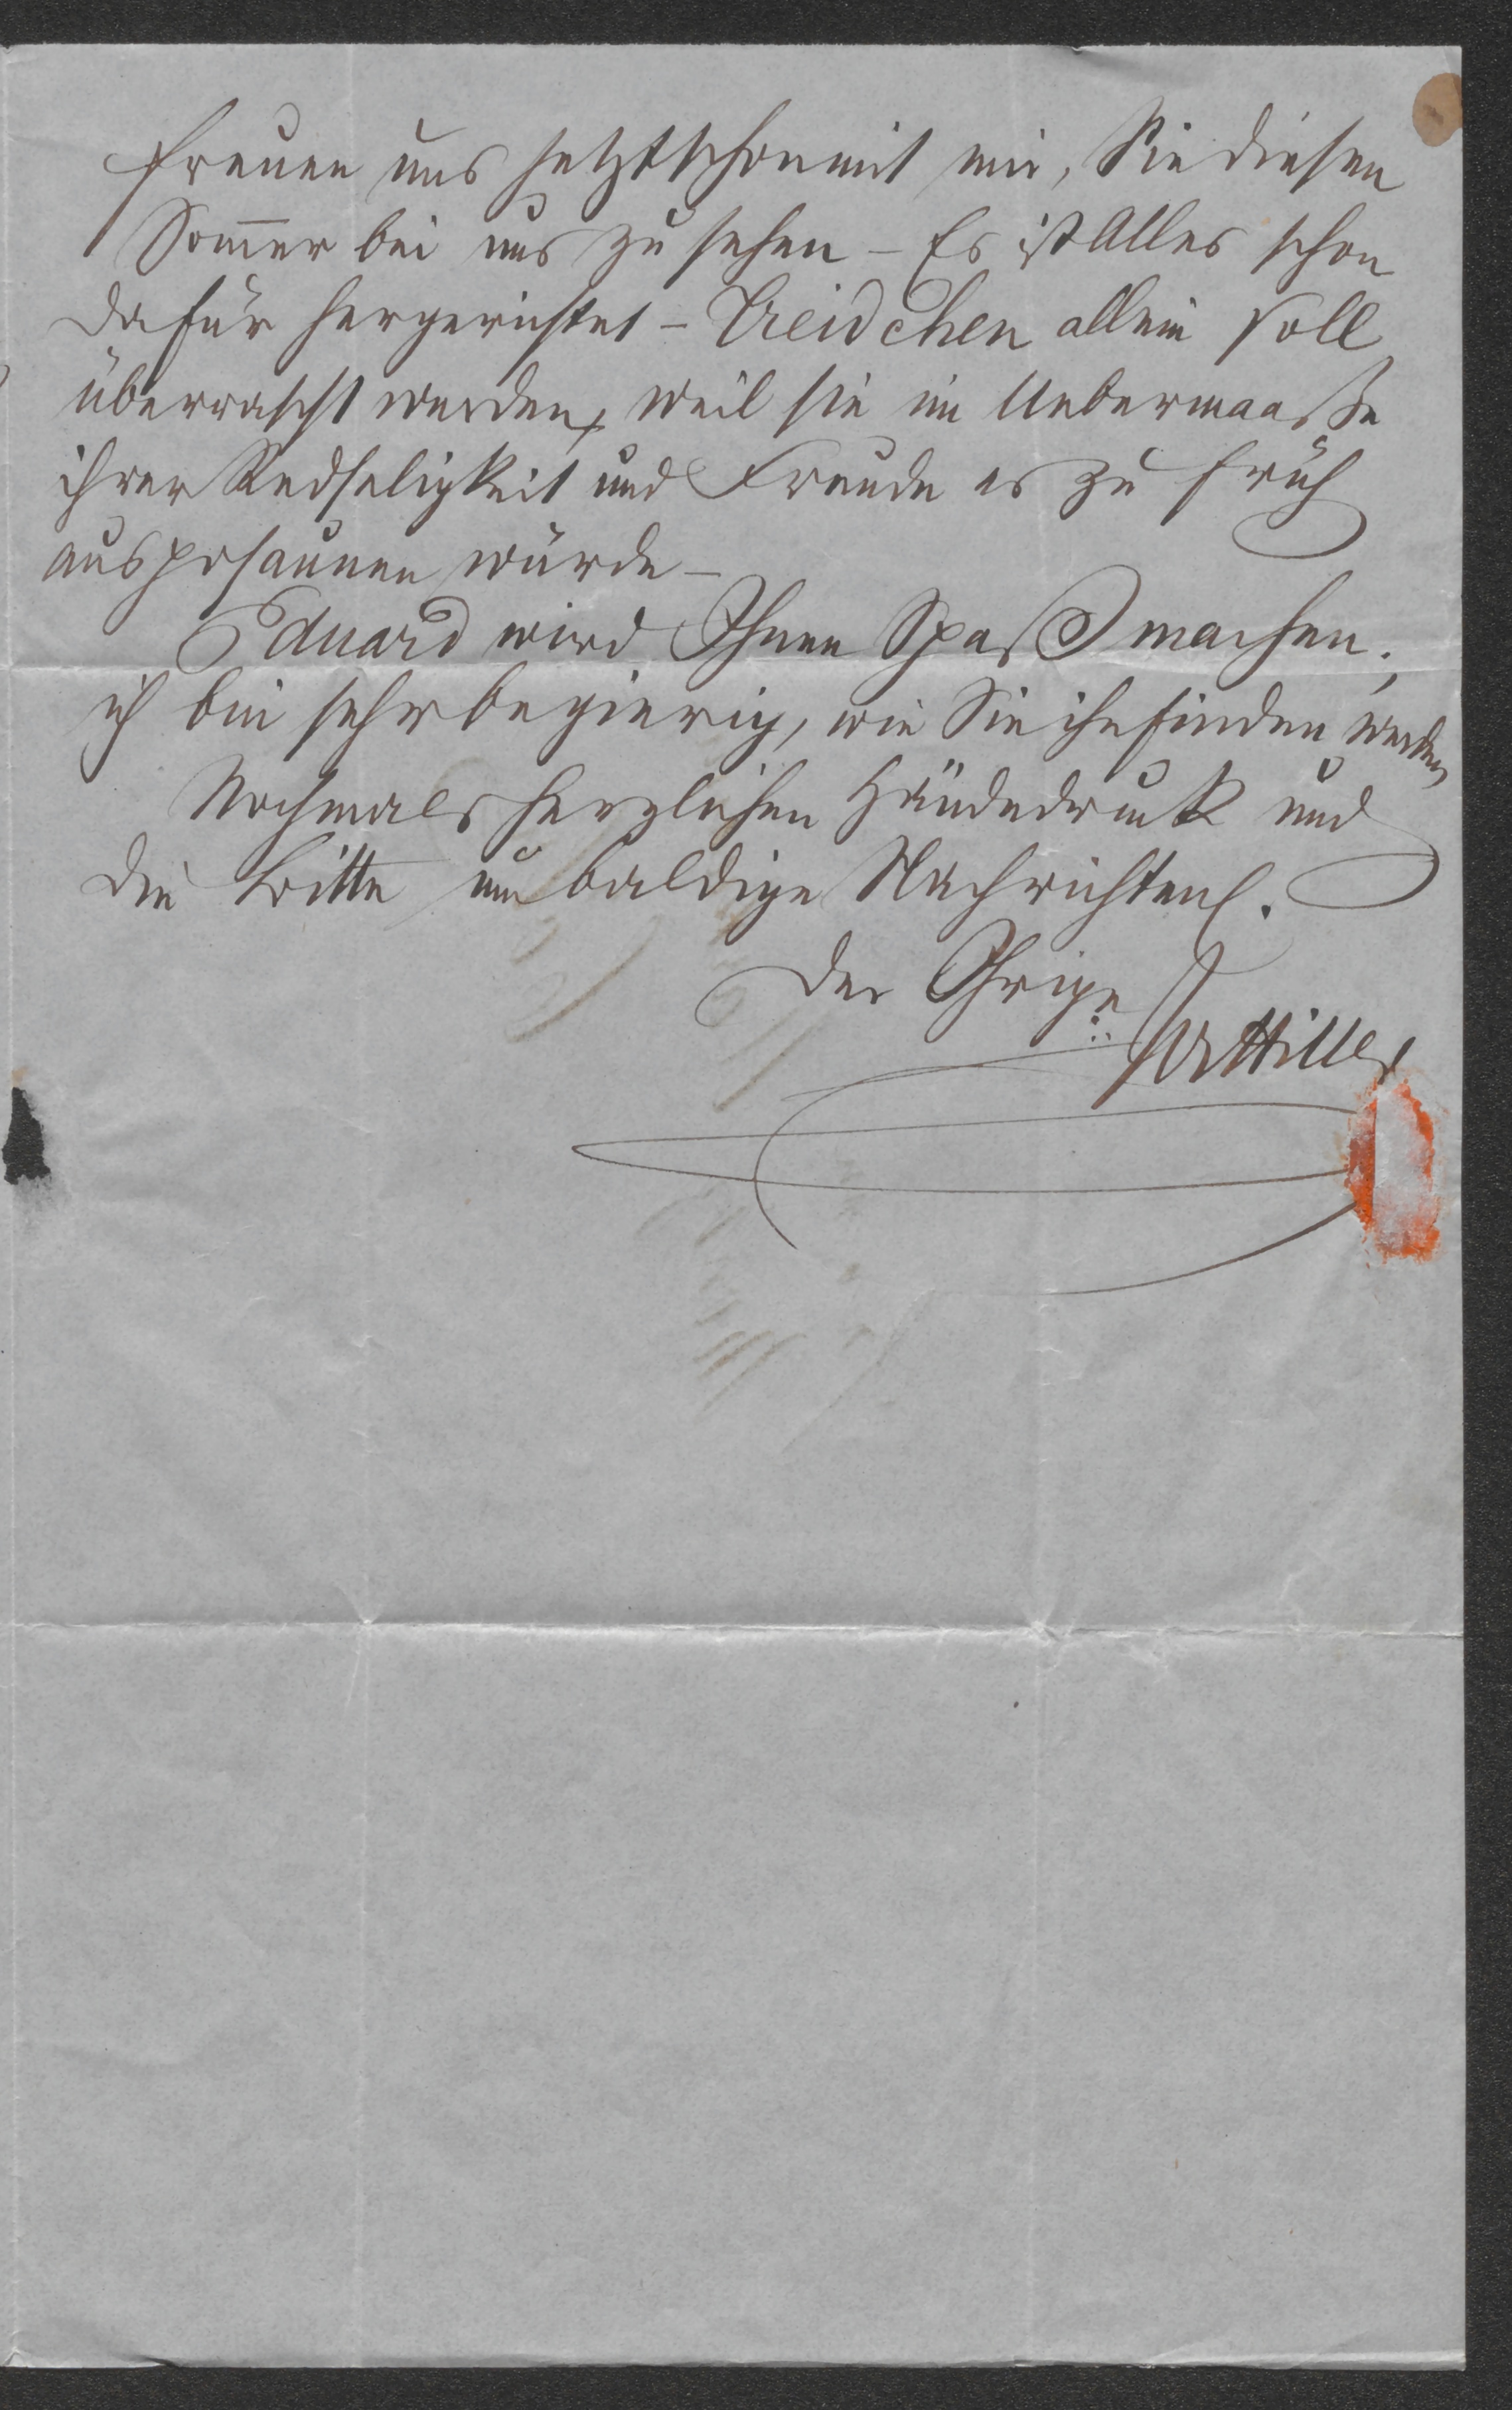 freuen uns jetzt schon mit mir, Sie diesen
Som̅er bei uns zu sehen – Es ist Alles schon
dafür hergerichtet – Treidchen allein soll
überrascht werden, weil sie im Uebermaaße
ihrer Redseligkeit und Freude es zu früh
ausposaunen würde –
Eduard wird Ihnen Spaß machen;
ich bin sehr begierig, wie Sie ihn finden werden
Nochmals herzlichen Händedruck und
die Bitte um baldige Nachrichten.
Der Ihrige
Hiller